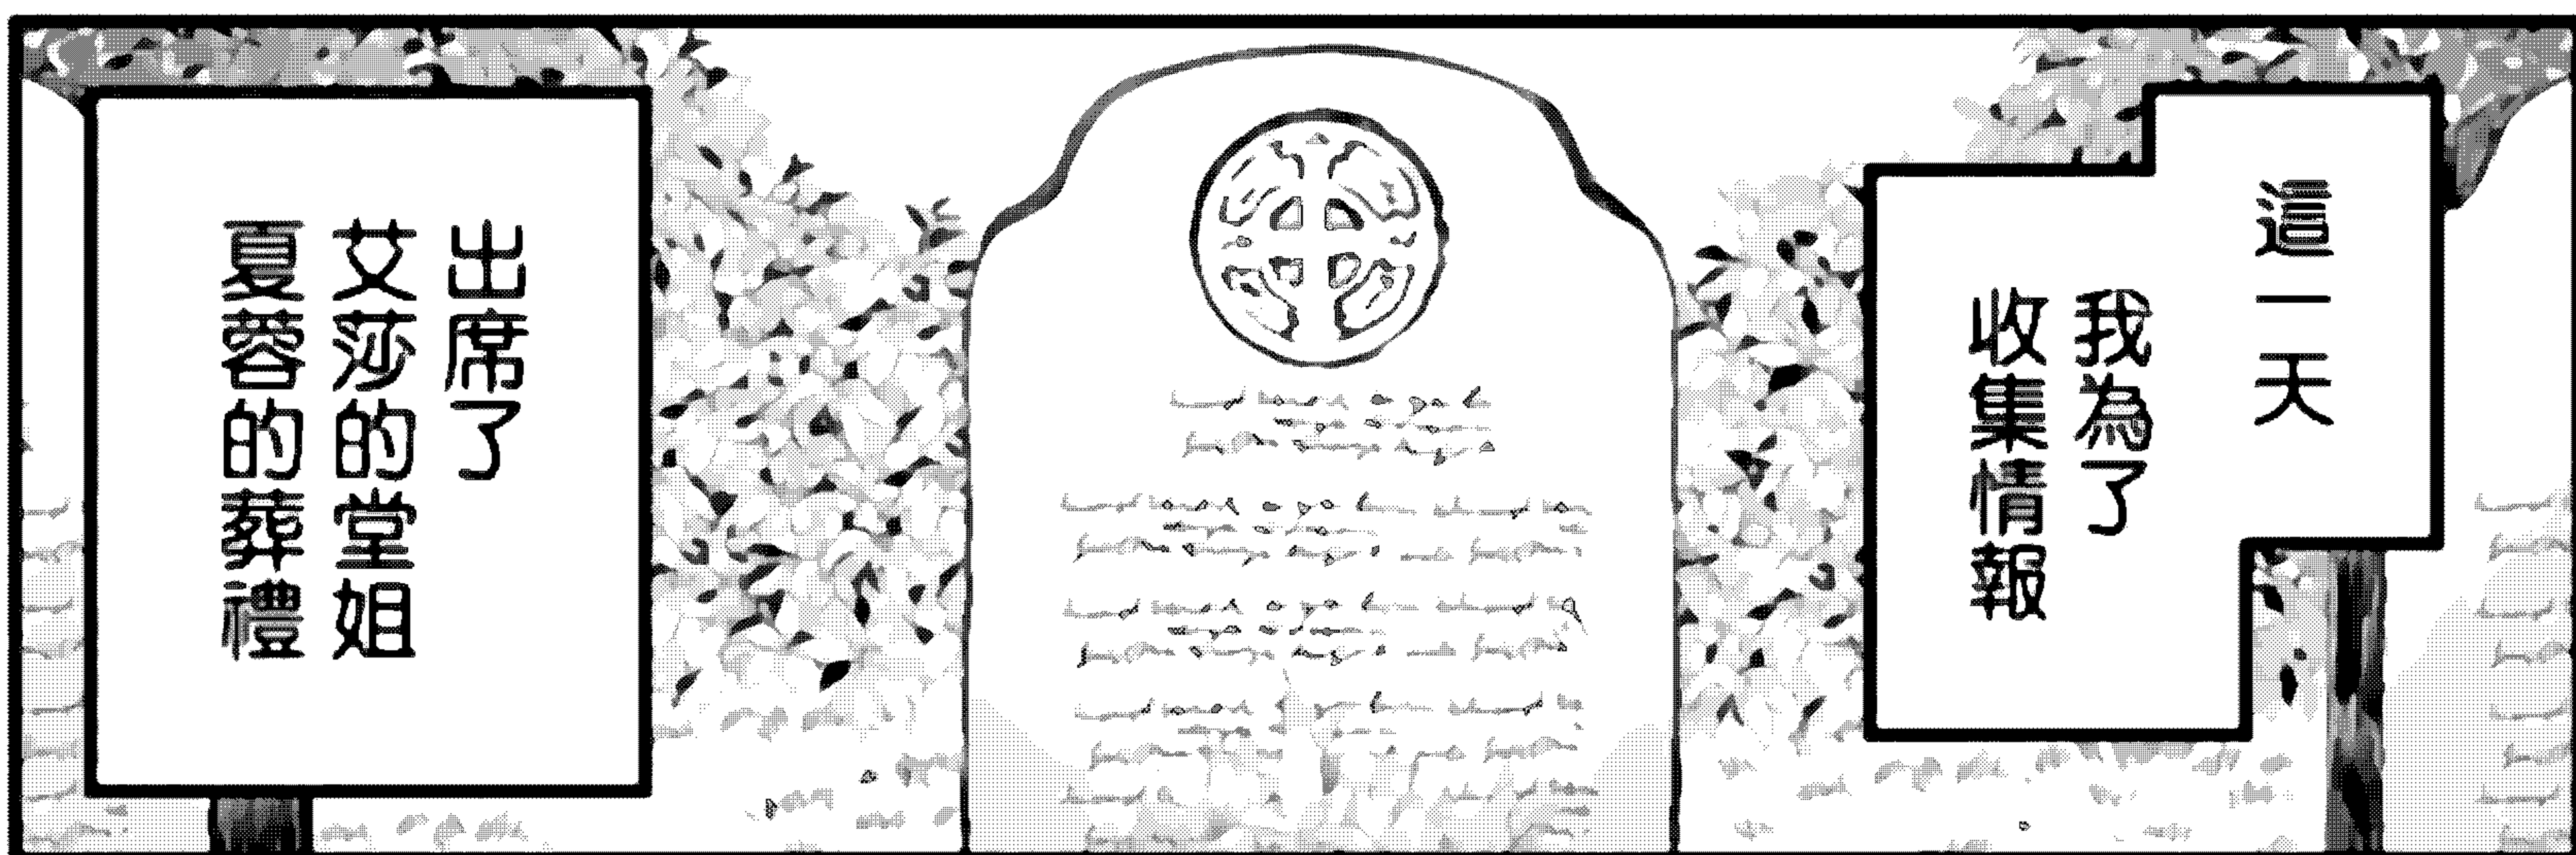 這一天
我為了
收集情報
出席了
艾莎的堂姐
夏蓉的葬禮